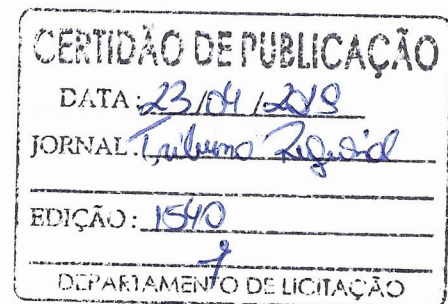 CERTIDÃO DE PUBLICAÇÃO
DATA: 23/04/2019
JORNAL: Tribuna Regional
EDIÇÃO: 1540
DEPARTAMENTO DE LICITAÇÃO